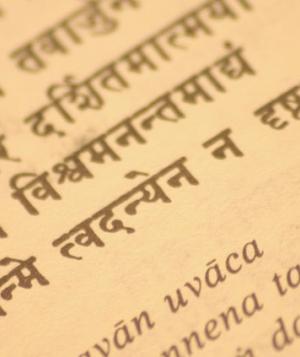 तवार्जुन
दर्शितमात्मया
विश्वमनन्तमाद्यं
न्मे त्वदन्येन न दृष्
avān uvāca
nnena ta
ṁ da